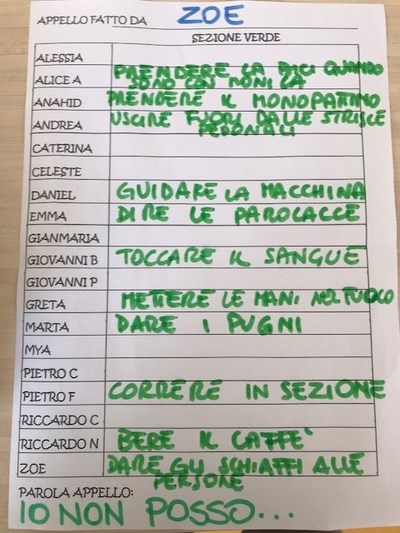 APPELLO FATTO DA ZOE
SEZIONE VERDE
ALESSIA
ALICE A PRENDERE LA BICI QUANDO
SONO COSÌ NONI LA
ANAHID PRENDERE IL MONOPATTINO
ANDREA USCIRE FUORI DALLE STRISCE
PEDONALI
CATERINA
CELESTE
DANIEL GUIDARE LA MACCHINA
EMMA DIRE LE PAROLACCE
GIANMARIA
GIOVANNI B TOCCARE IL SANGUE
GIOVANNI P
GRETA METTERE LE MANI NEL FUOCO
MARTA DARE I PUGNI
MYA
PIETRO C
PIETRO F CORRERE IN SEZIONE
RICCARDO C
RICCARDO N BERE IL CAFFE'
ZOE DARE GLI SCHIAFFI ALLE
PERSONE
PAROLA APPELLO:
IO NON POSSO...